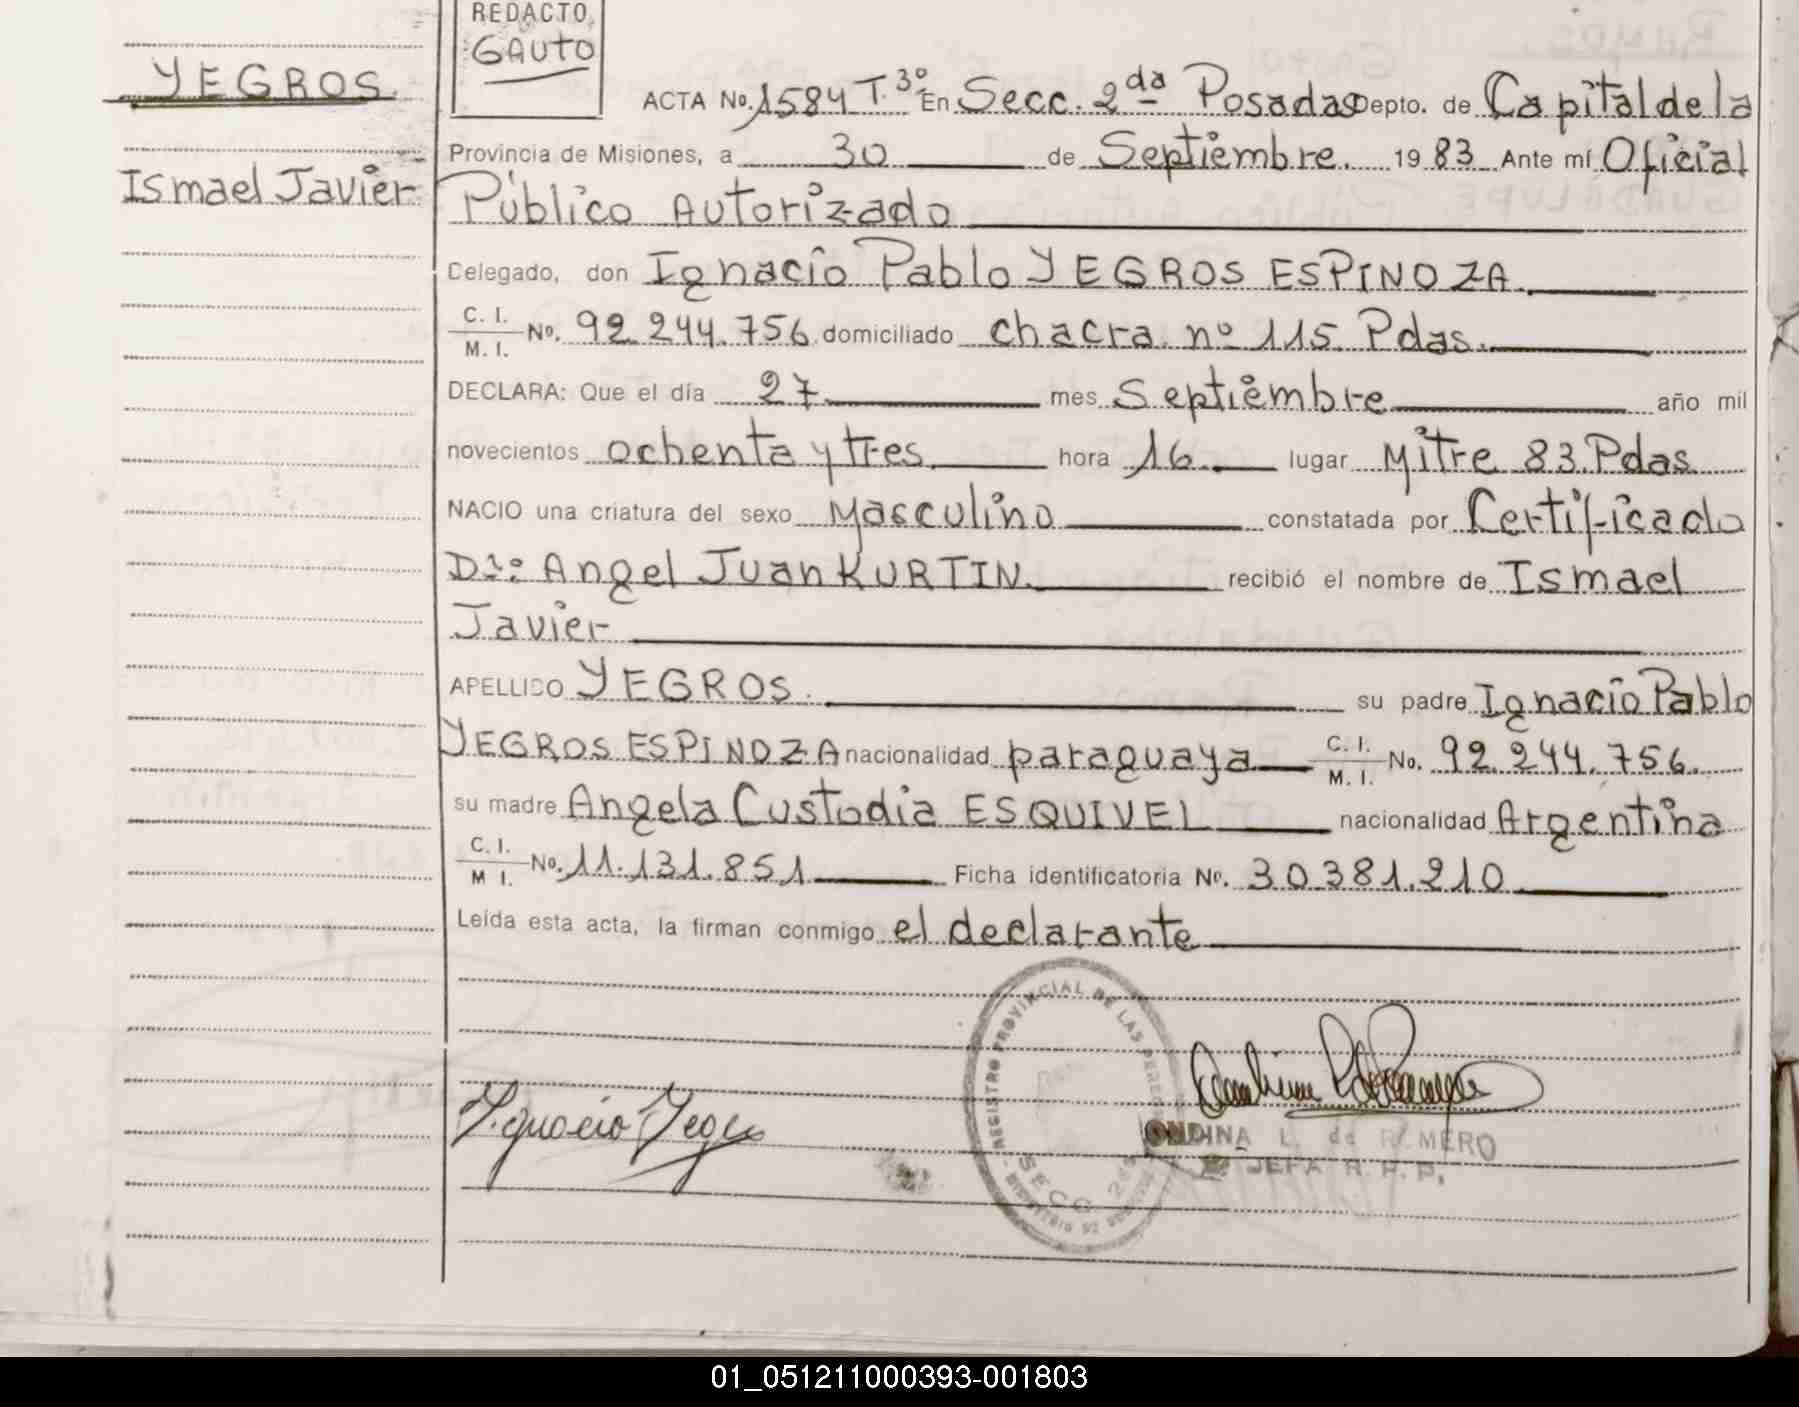 REDACTO
GAUTO
YEGROS
Ismael Javier
ACTA No. 1584 T. 3º En Secc. 2da Posadas Depto. de Capital de la
Provincia de Misiones, a 30 de Septiembre. 1983 Ante mí Oficial
Público Autorizado
Celegado, don Ignacio Pablo YEGROS ESPINOZA.
C. I.
M. I. No. 92.244.756 domiciliado chacra nº 115 Pdas.
DECLARA: Que el día 27 mes Septiembre año mil
novecientos ochenta y tres hora 16. lugar Mitre 83. Pdas
NACIO una criatura del sexo Masculino constatada por Certificado
Dr: Angel Juan KURTIN. recibió el nombre de Ismael
Javier
APELLIDO YEGROS. su padre Ignacio Pablo
YEGROS ESPINOZA nacionalidad paraguaya C. I.
M. I. No. 92.244.756.
su madre Angela Custodia ESQUIVEL nacionalidad Argentina
C. I.
M I. No. 11.131.851 Ficha identificatoria No. 30.381.210
Leída esta acta, la firman conmigo el declarante
REGISTRO PROVINCIAL DE LAS PERSONAS
SECC. 2da
Ygnacio Yegros
ONDINA L. de ROMERO
JEFA R. P. P.
01_051211000393-001803